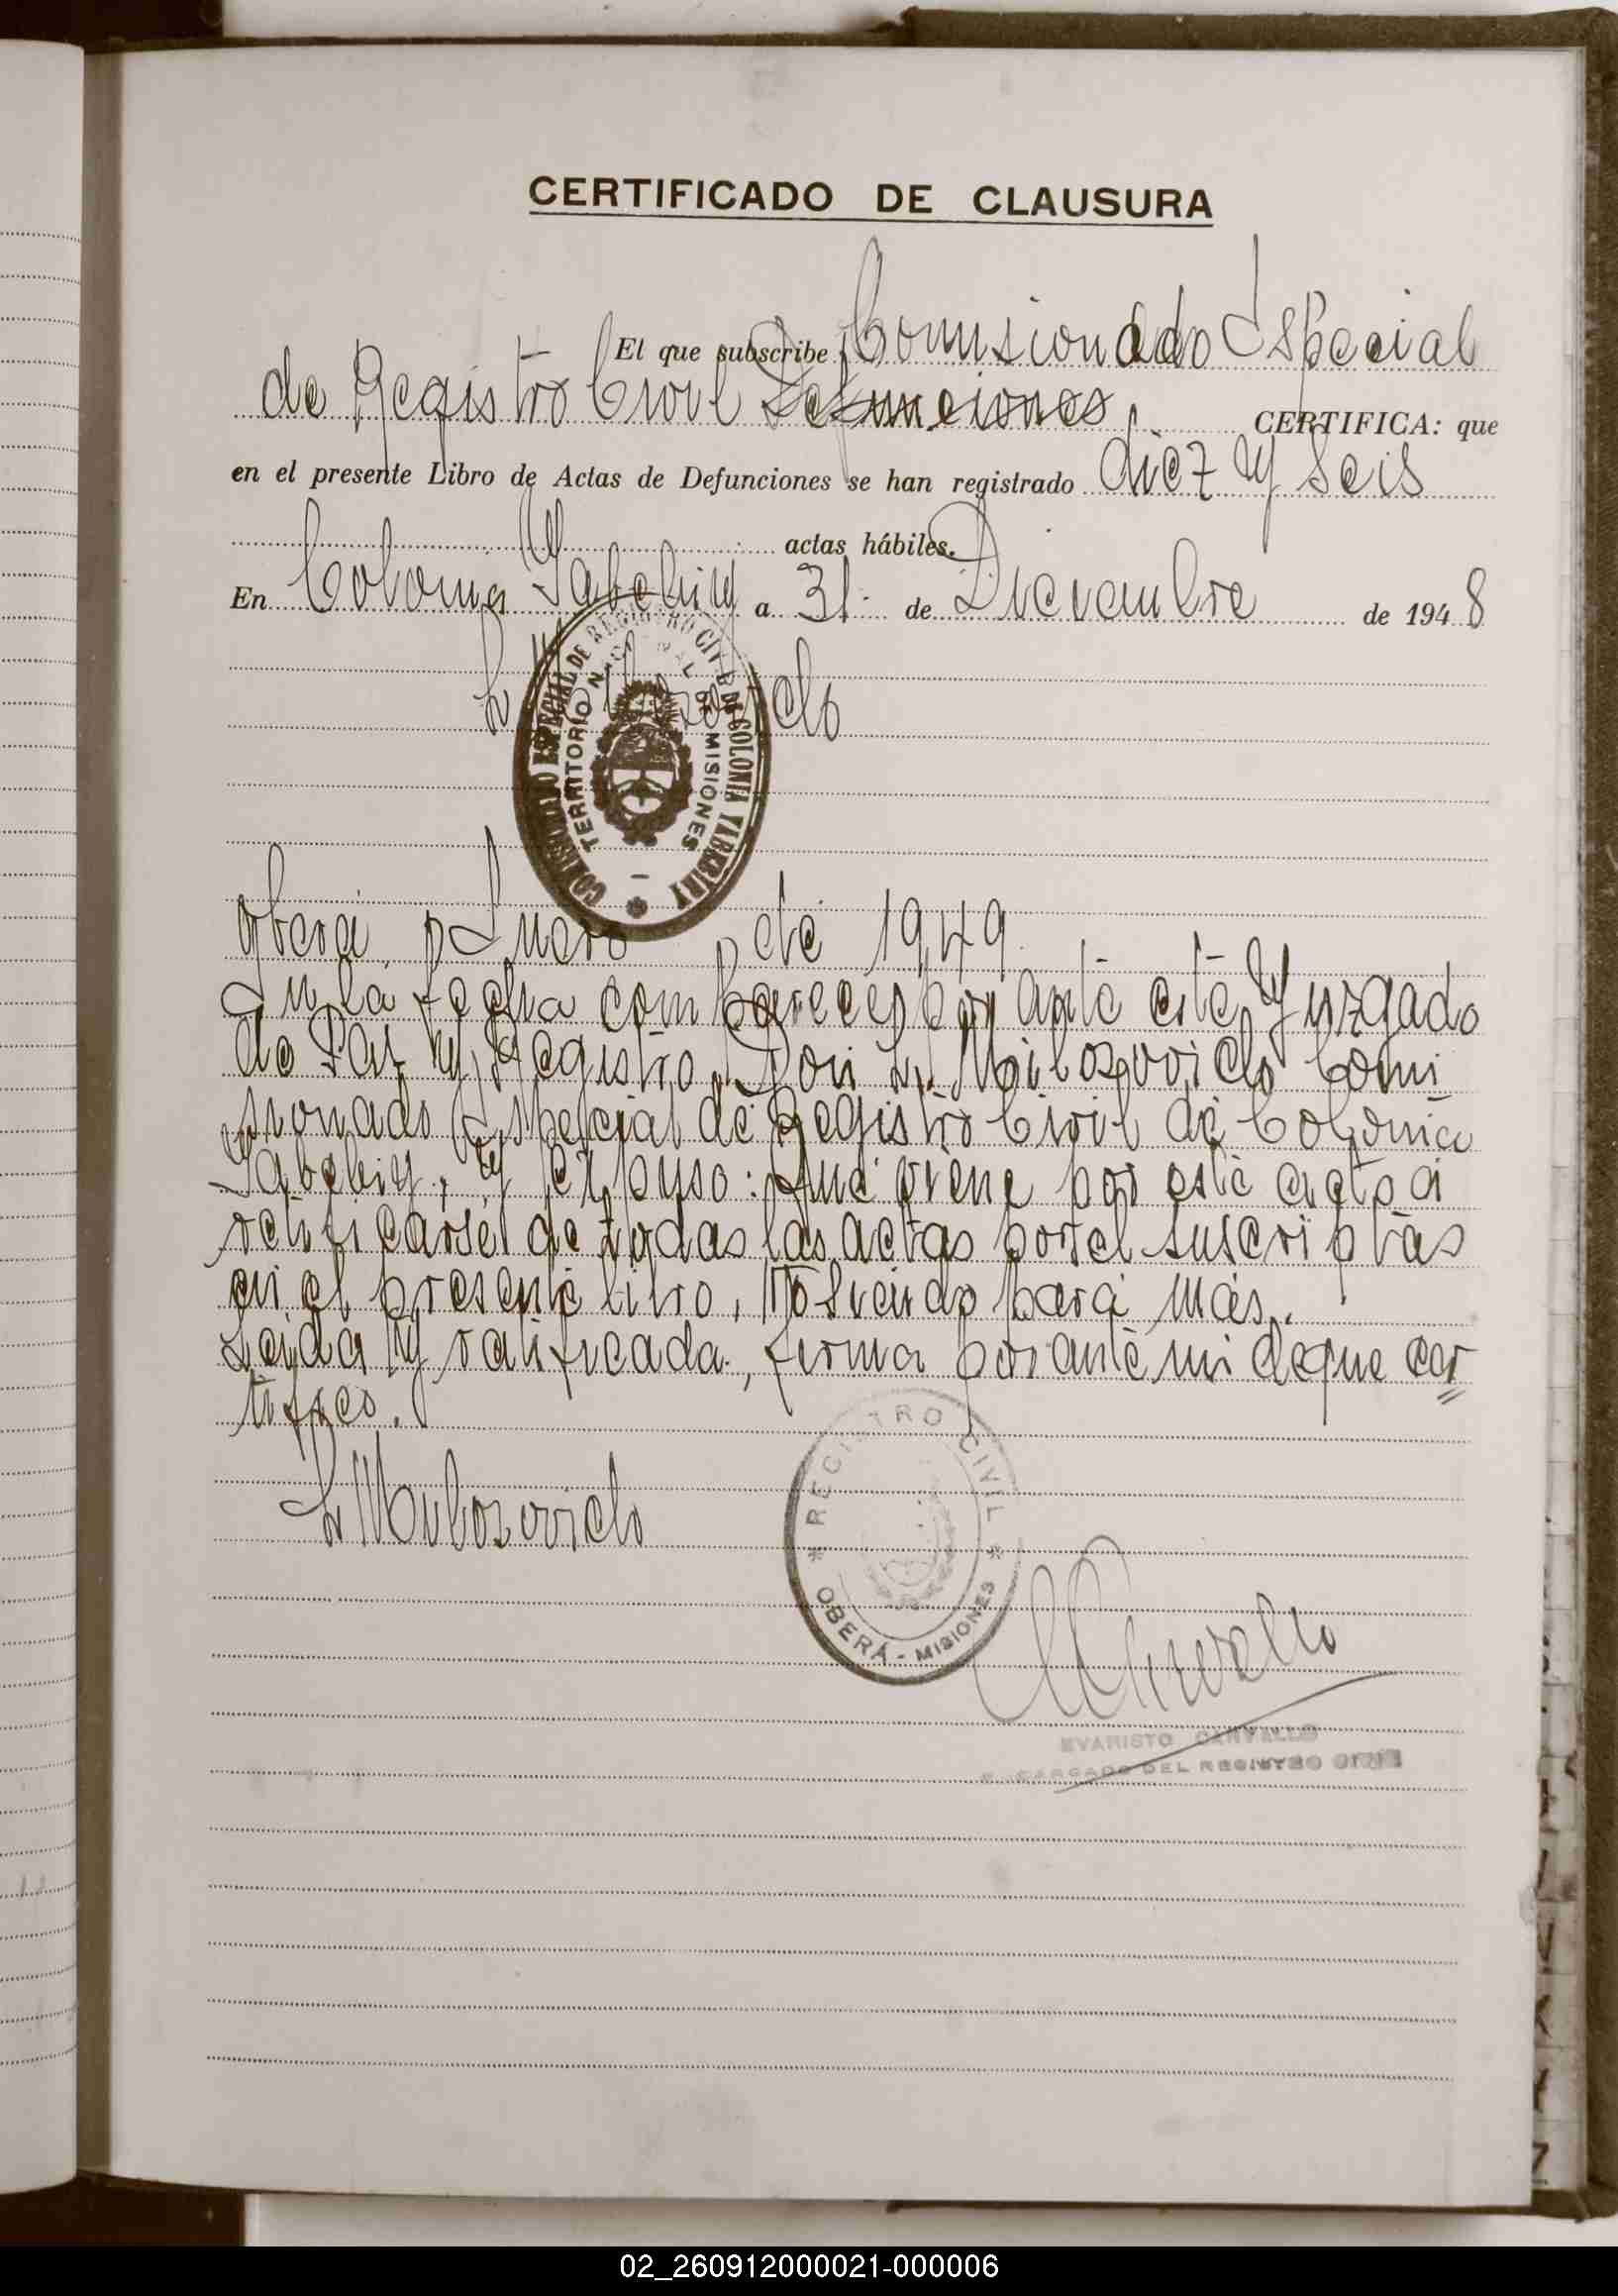 CERTIFICADO DE CLAUSURA
El que subscribe Comisionado Especial
de Registro Civil Defunciones CERTIFICA: que
en el presente Libro de Actas de Defunciones se han registrado diez y seis
actas hábiles.
En Colonia Yabebiry a 31 de Diciembre de 1948
COMISIONADO ESPECIAL DE REGISTRO CIVIL DE COLONIA YABEBIRY
TERRITORIO NACIONAL DE MISIONES
Oberá, Enero de 1949
En la fecha comparece por ante este Juzgado
de Paz y Registro, Don L. Comi
sionado Especial de Registro Civil de Colonia
Yabebiry, y expuso: Que viene por este acto a
ratificarse de todas las actas por el suscriptas
en el presente libro, no siendo para más.
Leida y ratificada, firma por ante mi de que cer
tifico.
REGISTRO CIVIL
OBERÁ - MISIONES
EVARISTO CARVALLO
ENCARGADO DEL REGISTRO CIVIL
02_260912000021-000006